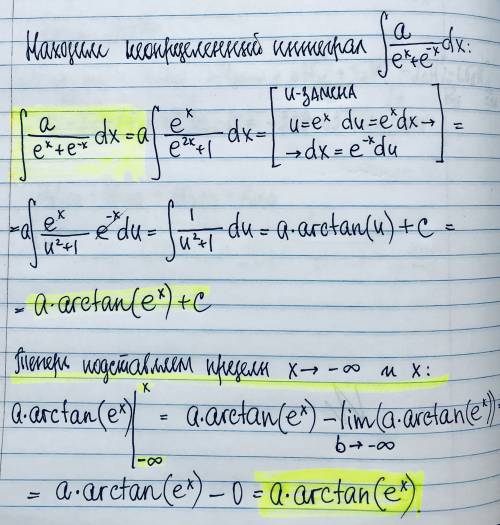 Находим неопределенный интеграл ∫ a/(eˣ+e⁻ˣ) dx:
∫ a/(eˣ+e⁻ˣ) dx = a∫ eˣ/(e²ˣ+1) dx = [ u-замена u=eˣ du=eˣdx→ →dx=e⁻ˣdu ] =
=a∫ eˣ/(u²+1) e⁻ˣdu = ∫ 1/(u²+1) du = a·arctan(u)+c =
= a·arctan(eˣ)+c
Теперь подставляем пределы x→-∞ и x:
a·arctan(eˣ)|₋∞ˣ = a·arctan(eˣ) - lim b→-∞ (a·arctan(eˣ)) =
= a·arctan(eˣ) - 0 = a·arctan(eˣ)